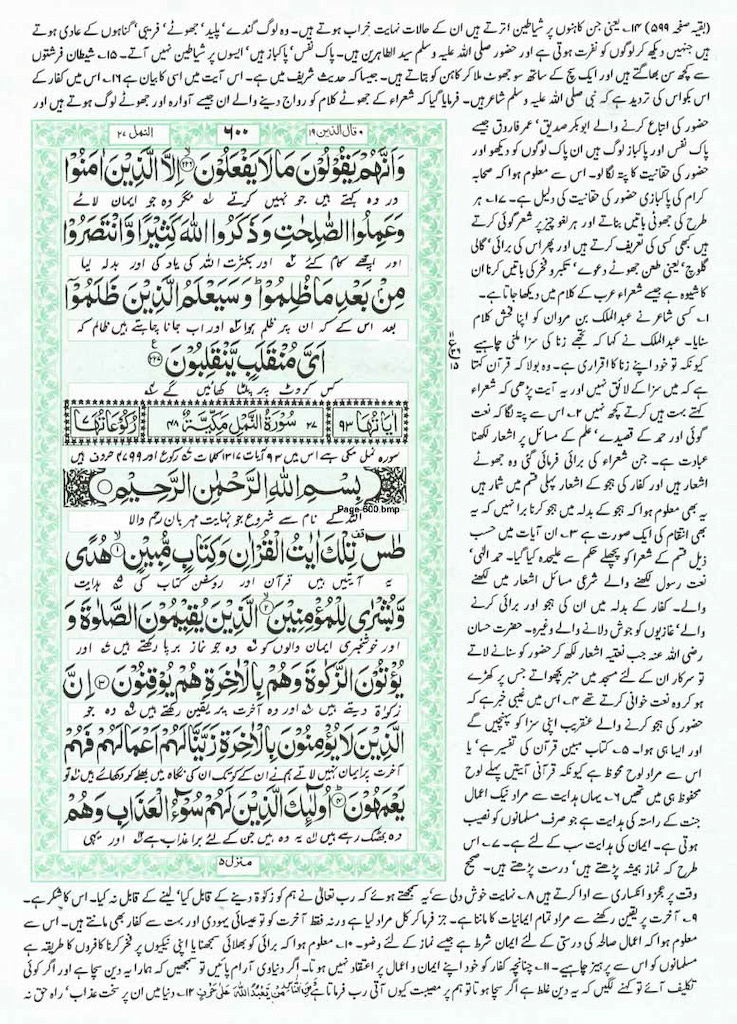 (بقیہ صفحہ ۵۹۹) ۱۴؎ یعنی جن کاہنوں پر شیاطین اترتے ہیں ان کے حالات نہایت خراب ہوتے ہیں۔ وہ لوگ گندے' پلید' جھوٹے' فریبی' گناہوں کے عادی ہوتے
ہیں جنہیں دیکھ کر لوگوں کو نفرت ہوتی ہے اور حضور صلی اللہ علیہ وسلم سید الطاہرین ہیں۔ پاک نفس' پاکباز ہیں' ایسوں پر شیاطین نہیں آتے۔ ۱۵؎ شیطان فرشتوں
سے کچھ سن بھاگتے ہیں اور ایک سچ کے ساتھ سو جھوٹ ملا کر کاہن کو بتاتے ہیں۔ جیسا کہ حدیث شریف میں ہے۔ اس آیت میں اسی کا بیان ہے ۱۶؎ اس میں کفار کے
اس بکواس کی تردید ہے کہ نبی صلی اللہ علیہ وسلم شاعر ہیں۔ فرمایا گیا کہ شعراء کے جھوٹے کلام کو رواج دینے والے ان جیسے آوارہ اور جھوٹے لوگ ہوتے ہیں اور
حضور کی اتباع کرنے والے ابوبکر صدیق' عمر فاروق جیسے
پاک نفس اور پاکباز لوگ ہیں ان پاک لوگوں کو دیکھو اور
حضور کی حقانیت کا پتہ لگا لو۔ اس سے معلوم ہوا کہ صحابہ
کرام کی پاکبازی حضور کی حقانیت کی دلیل ہے۔ ۱۷؎ ہر
طرح کی جھوٹی باتیں بناتے اور ہر لغو چیز پر شعر گوئی کرتے
ہیں کبھی کسی کی تعریف کرتے ہیں اور پھر اس کی برائی' گالی
گلوچ' یعنی طعن جھوٹے دعوے' تکبر و فخر کی باتیں کرنا ان
کا شیوہ ہے جیسے شعراء عرب کے کلام میں دیکھا جاتا ہے۔
۱؎ کسی شاعر نے عبدالملک بن مروان کو اپنا فحش کلام
سنایا۔ عبدالملک نے کہا کہ تجھے زنا کی سزا ملنی چاہیے
کیونکہ تو خود اپنے زنا کا اقراری ہے۔ وہ بولا کہ قرآن کہتا
ہے کہ میں سزا کے لائق نہیں اور یہ آیت پڑھی کہ شعراء
کہتے بہت ہیں کرتے کچھ نہیں ۲؎ اس سے پتہ لگا کہ نعت
گوئی اور حمد کے قصیدے' علم کے مسائل پر اشعار لکھنا
عبادت ہے۔ جن شعراء کی برائی فرمائی گئی وہ جھوٹے
اشعار ہیں اور کفار کی ہجو کے اشعار پہلی قسم میں شامل ہیں
یہ بھی معلوم ہوا کہ ہجو کے بدلہ میں ہجو کرنا برا نہیں کہ یہ
بھی انتقام کی ایک صورت ہے ۳؎ ان آیات میں حسب
ذیل قسم کے شعرا کو پچھلے حکم سے علیحدہ کیا گیا۔ حمد الٰہی'
نعت رسول لکھنے والے شرعی مسائل اشعار میں لکھنے
والے۔ کفار کے بدلہ میں ان کی ہجو اور برائی کرنے
والے' غازیوں کو جوش دلانے والے وغیرہ۔ حضرت حسان
رضی اللہ عنہ جب نعتیہ اشعار لکھ کر حضور کو سنانے لاتے
تو سرکار ان کے لئے مسجد میں منبر بچھواتے جس پر کھڑے
ہو کر وہ نعت خوانی کرتے تھے ۴؎ اس میں غیبی خبر ہے کہ
حضور کی ہجو کرنے والے عنقریب اپنی سزا کو پہنچیں گے
اور ایسا ہی ہوا۔ ۵؎ کتاب مبین قرآن کی تفسیر ہے' یا
اس سے مراد لوح محفوظ ہے کیونکہ قرآنی آیتیں پہلے لوح
محفوظ ہی میں تھیں ۶؎ یہاں ہدایت سے مراد نیک اعمال
جنت کے راستہ کی ہدایت ہے جو صرف مسلمانوں کو نصیب
ہوتی ہے۔ ایمان کی ہدایت سب کے لئے ہے۔ ۷؎ اس
طرح کہ نماز ہمیشہ پڑھتے ہیں' درست پڑھتے ہیں۔ صحیح
وقال الذین ۱۹ ۶۰۰ النمل ۲۷
وَاَنَّهُمْ يَقُوْلُوْنَ مَا لَا يَفْعَلُوْنَ ﴿۲۲۶﴾ اِلَّا الَّذِيْنَ اٰمَنُوْا
اور وہ کہتے ہیں جو نہیں کرتے ۱؎ مگر وہ جو ایمان لائے
وَعَمِلُوا الصّٰلِحٰتِ وَذَكَرُوا اللّٰهَ كَثِيْرًا وَّانْتَصَرُوْا
اور اچھے کام کئے ۲؎ اور بکثرت اللہ کی یاد کی اور بدلہ لیا
مِنْۢ بَعْدِ مَا ظُلِمُوْا ؕ وَسَيَعْلَمُ الَّذِيْنَ ظَلَمُوْۤا
بعد اس کے کہ ان پر ظلم ہوا ۳؎ اور اب جانا چاہتے ہیں ظالم کہ
اَىَّ مُنْقَلَبٍ يَّنْقَلِبُوْنَ ﴿۲۲۷﴾
کس کروٹ پر پلٹا کھائیں گے ۴؎
ع ۱۵
اٰيَاتُهَا ۹۳ ۲۷ سُوْرَةُ النَّمْلِ مَكِّيَّةٌ ۴۸ رُكُوْعَاتُهَا ۷
سورہ نمل مکی ہے اس میں ۹۳ آیات ۱۳۱۷ کلمات ۷ رکوع اور ۴۷۹۹ حرف ہیں
بِسْمِ اللّٰهِ الرَّحْمٰنِ الرَّحِيْمِ
Page-600.bmp
اللہ کے نام سے شروع جو نہایت مہربان رحم والا
طٰسٓ ۫ تِلْكَ اٰيٰتُ الْقُرْاٰنِ وَكِتَابٍ مُّبِيْنٍ ﴿۱﴾ هُدًى
یہ آیتیں ہیں قرآن اور روشن کتاب کی ۵؎ ہدایت
وَّبُشْرٰى لِلْمُؤْمِنِيْنَ ﴿۲﴾ الَّذِيْنَ يُقِيْمُوْنَ الصَّلٰوةَ وَ
اور خوشخبری ایمان والوں کو ۶؎ وہ جو نماز برپا رکھتے ہیں ۷؎ اور
يُؤْتُوْنَ الزَّكٰوةَ وَهُمْ بِالْاٰخِرَةِ هُمْ يُوْقِنُوْنَ ﴿۳﴾ اِنَّ
زکوٰۃ دیتے ہیں ۸؎ اور وہ آخرت پر یقین رکھتے ہیں ۹؎ وہ جو
الَّذِيْنَ لَا يُؤْمِنُوْنَ بِالْاٰخِرَةِ زَيَّنَّا لَهُمْ اَعْمَالَهُمْ فَهُمْ
آخرت پر ایمان نہیں لاتے ہم نے ان کے کوتک ان کی نگاہ میں بھلے کر دکھائے ہیں ۱۰؎ تو
يَعْمَهُوْنَ ﴿۴﴾ اُولٰٓئِكَ الَّذِيْنَ لَهُمْ سُوْٓءُ الْعَذَابِ وَهُمْ
وہ بھٹک رہے ہیں ۱۱؎ یہ وہ ہیں جن کے لئے برا عذاب ہے ۱۲؎ اور یہی
منزل ۵
وقت پر عجز و انکساری سے ادا کرتے ہیں ۸؎ نہایت خوش دلی سے' یہ سمجھتے ہوئے کہ رب تعالیٰ نے ہم کو زکوٰۃ دینے کے قابل کیا' لینے کے قابل نہ کیا۔ اس کا شکر ہے۔
۹؎ آخرت پر یقین رکھنے سے مراد تمام ایمانیات کا ماننا ہے۔ جز فرما کر کل مراد لیا ہے ورنہ فقط آخرت کو تو عیسائی یہودی اور بہت سے کفار بھی مانتے ہیں۔ اس سے
معلوم ہوا کہ اعمال صالحہ کی درستی کے لئے ایمان شرط ہے جیسے نماز کے لئے وضو۔ ۱۰؎ معلوم ہوا کہ برائی کو بھلائی سمجھنا یا اپنی نیکیوں پر فخر کرنا کافروں کا طریقہ ہے
مسلمانوں کو اس سے پرہیز چاہیے۔ ۱۱؎ چنانچہ کفار کو خود اپنے ایمان و اعمال پر اعتقاد نہیں ہوتا۔ اگر دنیاوی آرام پائیں تو سمجھیں کہ ہمارا یہ دین سچا ہے اور اگر کوئی
تکلیف آئے تو کہنے لگیں کہ یہ دین غلط ہے اگر سچا ہوتا تو ہم پر مصیبت کیوں آتی رب فرماتا ہے وَمِنَ النَّاسِ مَنْ يَّعْبُدُ اللّٰهَ عَلٰى حَرْفٍ ۱۲؎ دنیا میں ان پر سخت عذاب' راہ حق نہ